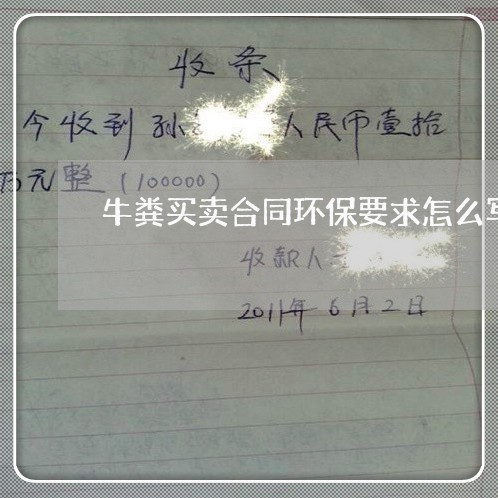 收条
今收到孙 人民币壹拾
万元整（100000）
牛粪买卖合同环保要求怎么写
收款人
2011年6月2日